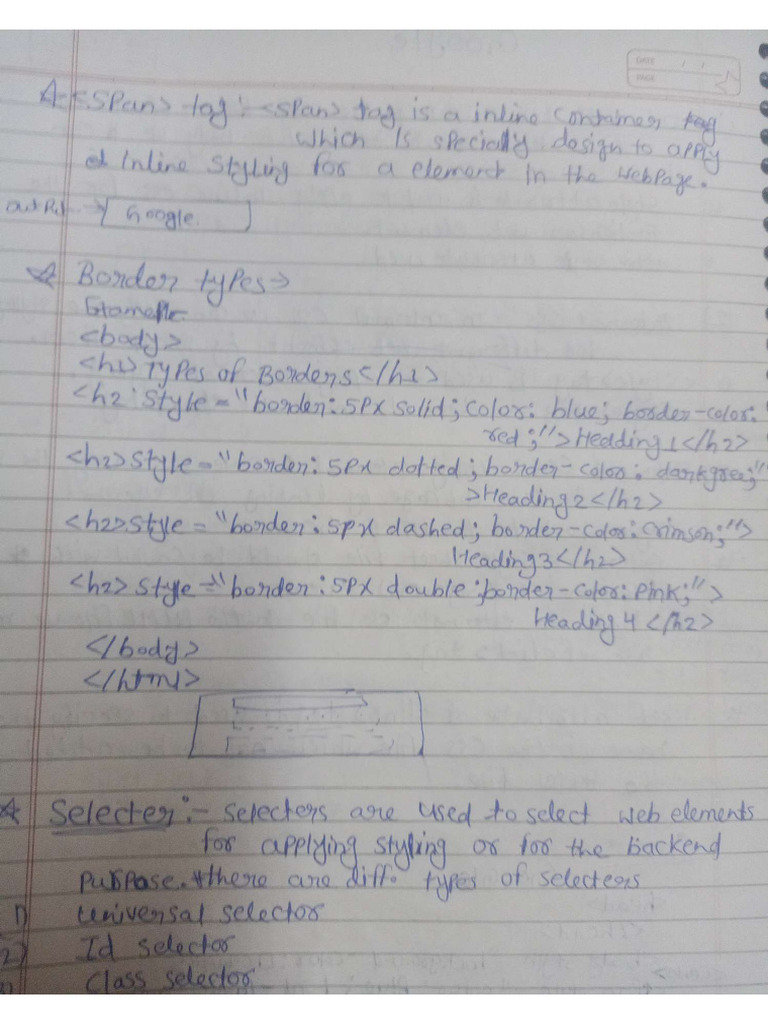 DATE
PAGE
<span> tag :- <span> tag is a inline container tag
which is specially design to apply
Inline styling for a element in the webpage.
output → Google.
Border types ⇒
<body>
<h1> Types of Borders </h1>
<h2 style = "border: 5px solid; color: blue; border-color:
red;"> Heading 1 </h2>
<h2> style = "border: 5px dotted; border-color: darkgree;"
> Heading 2 </h2>
<h2> style = "border: 5px dashed; border-color: crimson;">
Heading 3 </h2>
<h2> style = "border: 5px double; border-color: pink;">
Heading 4 </h2>
</body>
</html>
Selecter :- selecters are used to select web elements
for applying styling or for the backend
purpose. there are diff. types of selecters
1) universal selector
2) Id selector
class selector